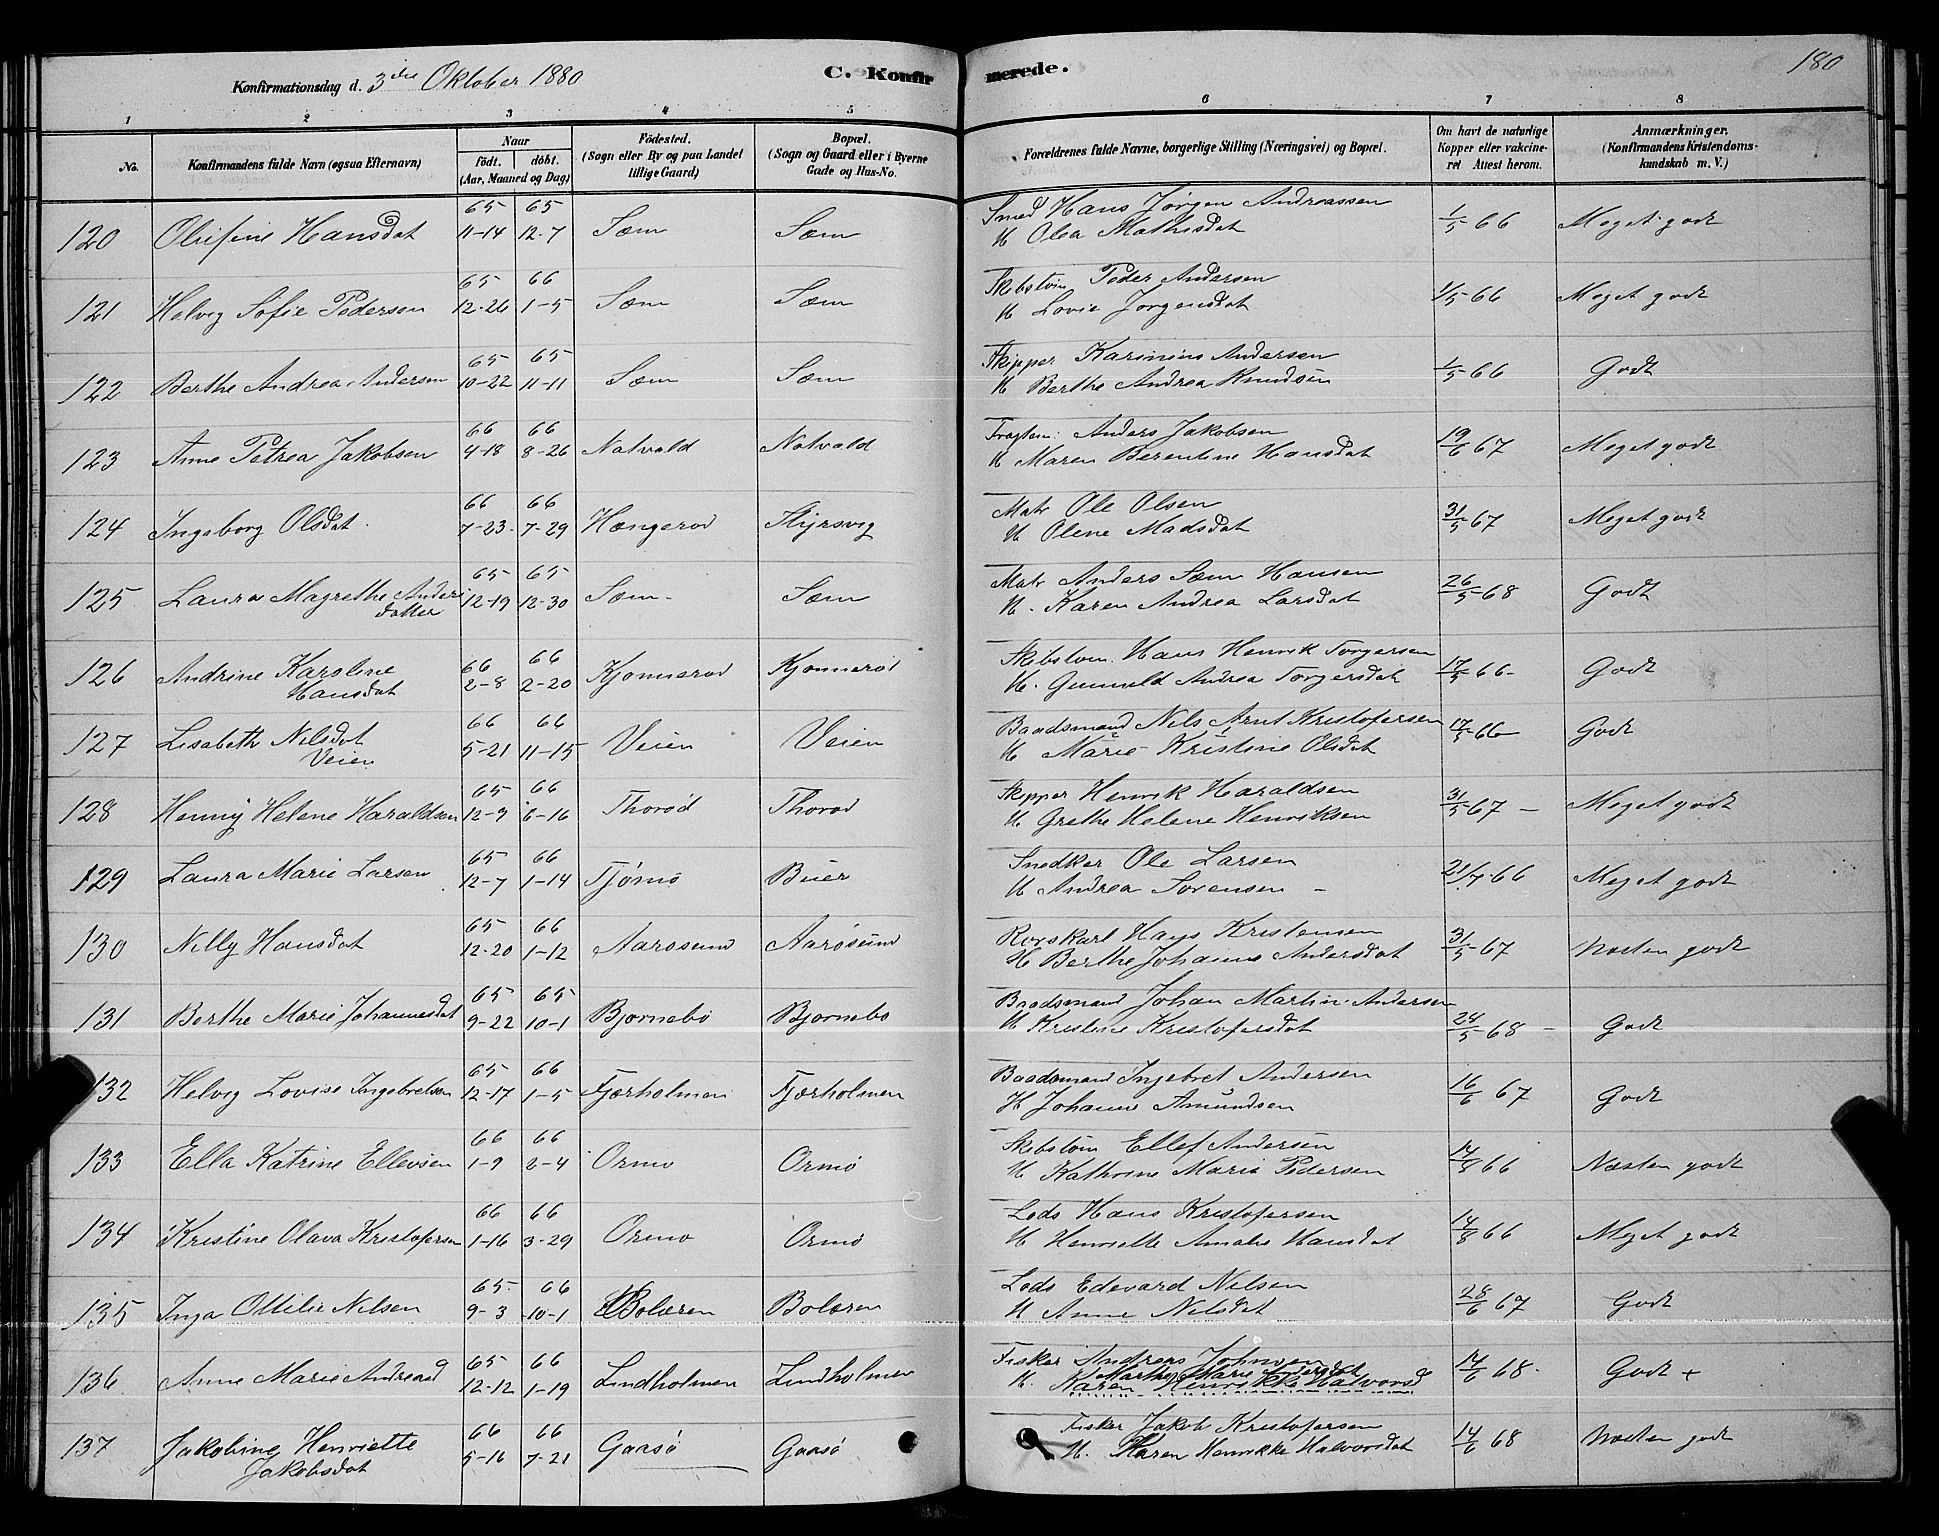 Konfirmationsdag d. 3die Oktober 1880
C. Konfirmerede.
180
1 2 3 4 5 6 7 8
No.
Konfirmandens fulde Navn (ogsaa Efternavn)
Naar
födt. döbt.
(Aar, Maaned og Dag)
Födested.
(Sogn eller By og paa Landet
tillige Gaard)
Bopæl.
(Sogn og Gaard eller i Byerne
Gade og Hus-No.
Forældrenes fulde Navne, borgerlige Stilling (Næringsvei) og Bopæl.
Om havt de naturlige
Kopper eller vakcine-
ret Attest herom.
Anmærkninger.
(Konfirmandens Kristendoms-
kundskab m. V.)
65 65 Smed Hans Jørgen Andreassen
120 Olufine Hansdat 11-14 12-7 Sæm Sæm H Olea Mathisdat 1/5 66 Meget godt
65 66 Skibstøm Peder Andersen
121 Helvig Sofie Pedersen 12-26 1-5 Sæm Sæm H Lovie Jørgensdat 1/5 66 Meget godt
65 65 Skipper Karinius Andersen
122 Berthe Andrea Andersen 10-22 11-11 Sæm Sæm H Berthe Andrea Knudsen 1/5 66 Godt
66 66 Anders Jakobsen
123 Anne Petrea Jakobsen 4-18 8-26 Natvald Notvald H Maren Berentine Hansdat 19/6 67 Meget godt
66 66 Matr Ole Olsen
124 Ingeborg Olsdat 7-23 7-29 Hængerød Styrsvig H Olene Madsdat 31/5 67 Meget godt
65 65 Matr Anders Sæm Hansen
125 Laura Magrethe Anders 12-19 12-30 Sæm Sæm H. Karen Andrea Larsdat 26/5 68 Godt
datter
66 66 Skibstøm. Hans Henrik Torgersen
126 Andrine Karoline 2-8 2-20 Kjønnerød Kjønnerød H. Gunnild Andrea Torgersdat 17/5 66 Godt
Hansdat
66 66 Baadsmand Nils Arnt Kristofersen
127 Lisabeth Nilsdat 5-21 11-15 Veien Veien H Marie Kristine Olsdat 17/5 66 Godt
Veien
65 66 Skipper Henrik Haraldsen
128 Henny Helene Haraldsen 12-9 6-16 Thorød Thorød H Grethe Helene Henriksen 31/5 67 - Meget godt
65 66 Snedker Ole Larsen
129 Laura Marie Larsen 12-7 1-14 Tjømø Buer H Andrea Sørensen - 21/7 66 Meget godt
65 66 Rorskarl Hans Kristensen
130 Nelly Hansdat 12-20 1-12 Aarøsund Aarøsund H Berthe Johanne Andersdat 31/5 67 Næsten godt
65 65 Baadsmand Johan Martin Andersen
131 Berthe Marie Johannesdat 9-22 10-1 Bjørnebø Bjørnebø H Kristine Kristofersdat 24/5 68 - Godt
65 66 Baadsmand Ingebret Andersen
132 Helvig Lovise Ingebretsen 12-17 1-5 Fjærholmen Fjærholmen H Johanne Amundsen 16/6 67 Godt
66 66 Skibstøm Ellef Andersen
133 Ella Katrine Ellevsen 1-9 2-4 Ormø Ormø H Kathrine Marie Pedersen 14/8 66 Næsten godt
66 66 Lods Hans Kristofersen
134 Kristine Olava Kristofersen 1-16 3-29 Ormø Ormø H Henriette Amalie Hansdat 14/8 66 Meget godt
65 66 Lods Edevard Nelsen
135 Inga Ottilie Nelsen 9-3 10-1 Bolæren Bolæren H Anne Nelsdat 28/6 67 Godt
65 66 Fisker Andreas Johnsen
136 Anne Marie Andread 12-12 1-19 Lindholmen Lindholmen H. Marthe Marie Andersdat 14/6 68 Godt +
Karen Henrikke Halvorsd
66 66 Fisker Jakob Kristofersen
137 Jakobine Henriette 5-16 7-21 Gaasø Gaasø H. Karen Henrikke Halvorsdat 14/6 68 Næsten godt
Jakobsdat